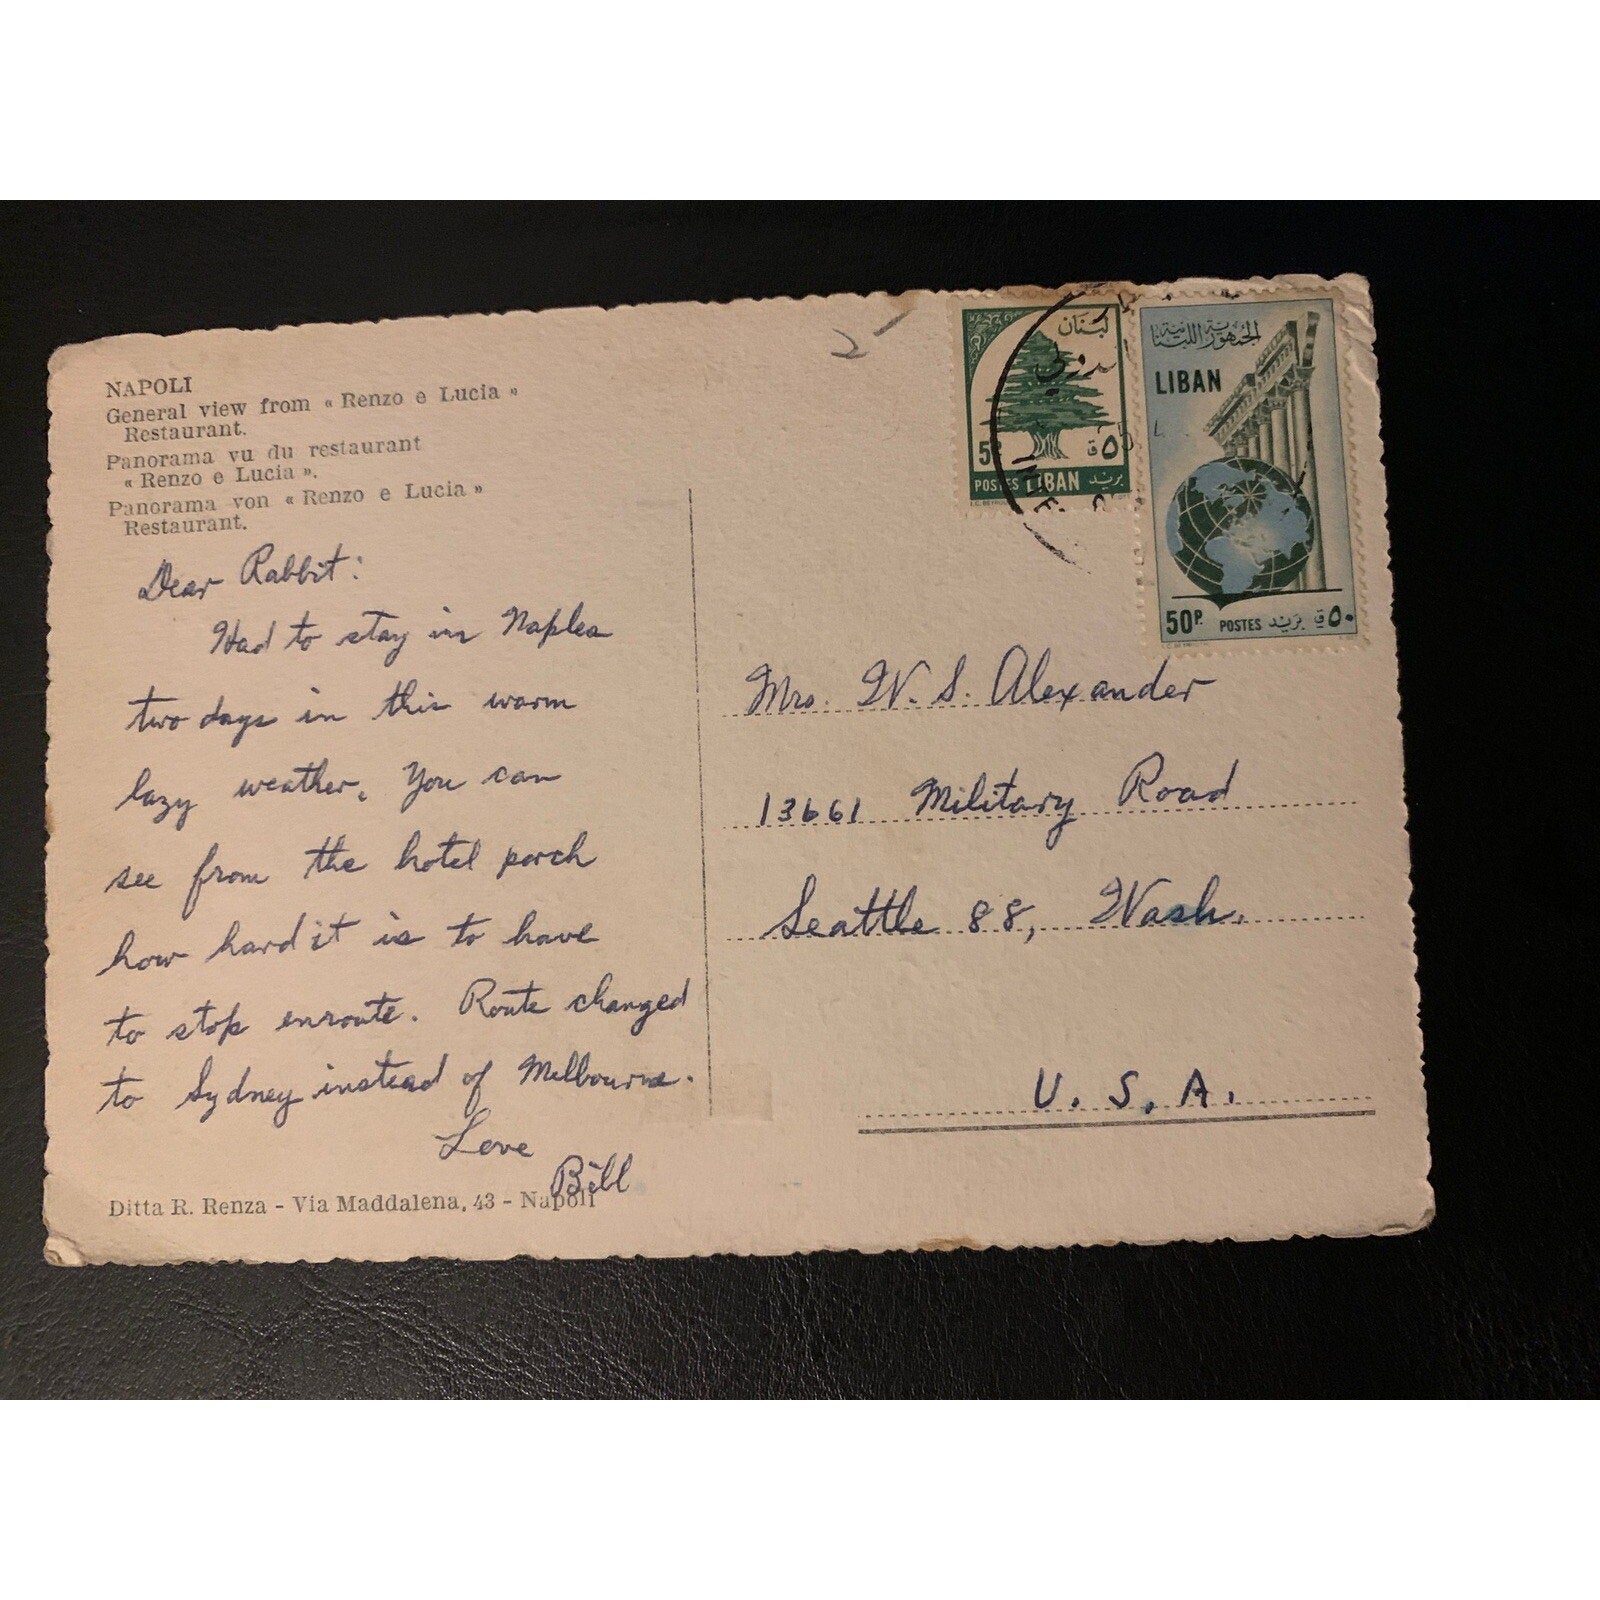 NAPOLI
General view from « Renzo e Lucia »
Restaurant.
Panorama vu du restaurant
« Renzo e Lucia ».
Panorama von « Renzo e Lucia »
Restaurant.
Dear Rabbit:
Had to stay in Naples
two days in this warm
lazy weather. You can
see from the hotel porch
how hard it is to have
to stop enroute. Route changed
to Sydney instead of Melbourne.
Love
Bill
Ditta R. Renza - Via Maddalena, 43 - Napoli
2
لبنان
5P ٥ق
POSTES LIBAN بريد
الجمهورية اللبنانية
LIBAN
50P. POSTES بريد ٥٠ق
Mrs. W. S. Alexander
13661 Military Road
Seattle 88, Wash.
U. S. A.